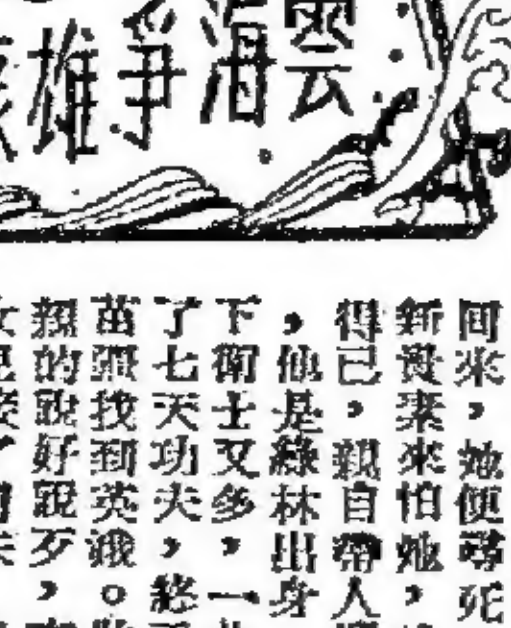 雲海爭雄
回來，她便尋死
新貴素來怕她，
得已，親自帶人
，他是綠林出身
下衛士又多，一
了七天功夫，終
苗頭找到英娥。
親的說好說歹，